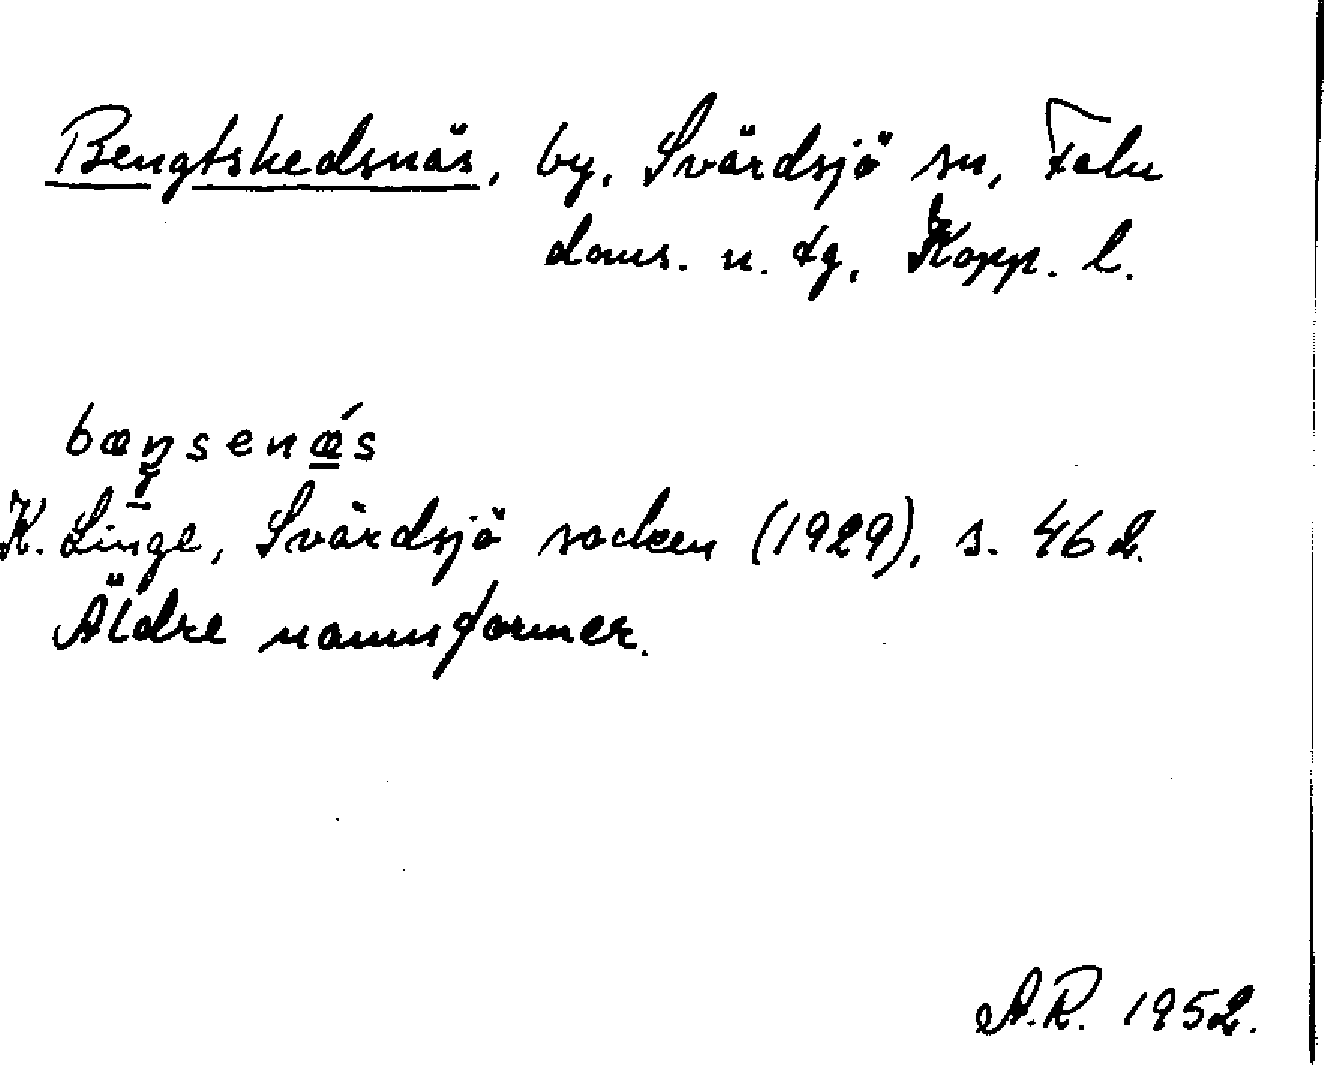 Bengtshedsnäs, by, Svärdsjö sn, Falu
doms. n. tg, Kopp. l.
bæŋsenǽs
K. Linge, Svärdsjö socken (1929), s. 462.
Äldre namnformer.
A.R. 1952.